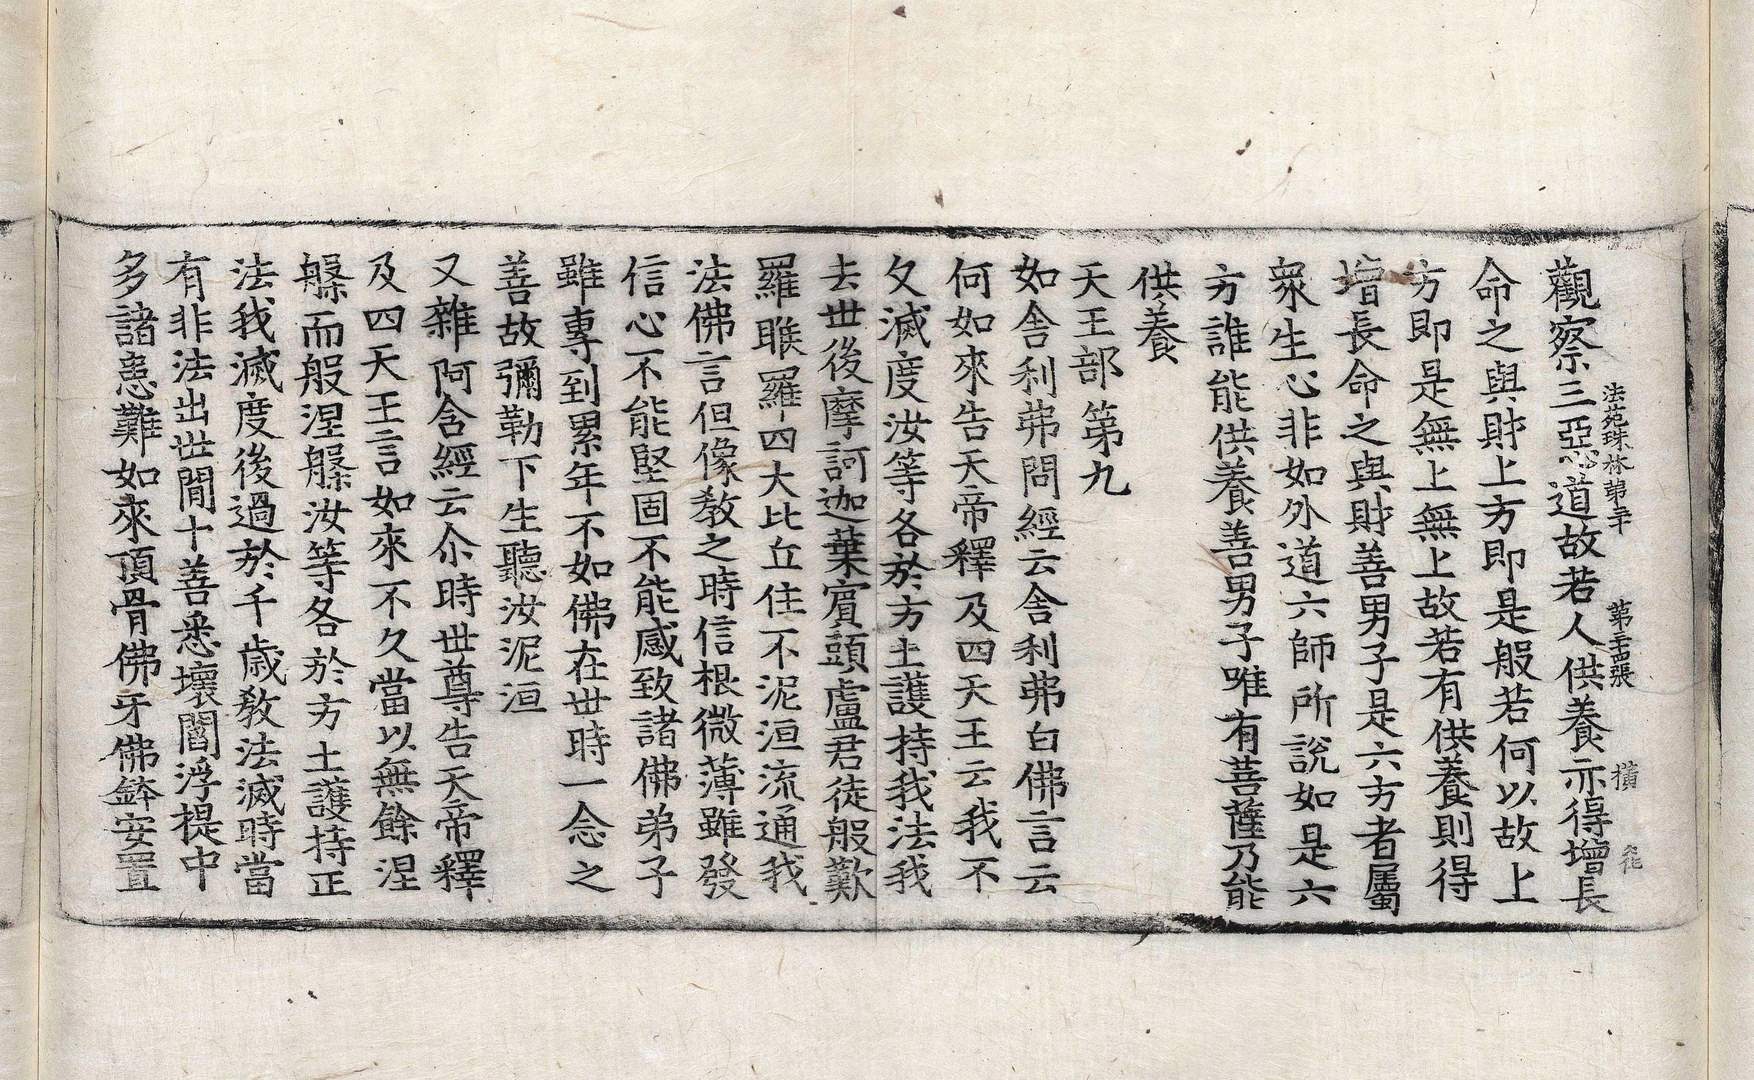 法苑珠林第三十 第三十四張 橫
觀察三惡道故若人供養亦得增長
命之與財上方即是般若何以故上
方即是無上無上故若有供養則得
增長命之與財善男子是六方者屬
衆生心非如外道六師所說如是六
方誰能供養善男子唯有菩薩乃能
供養
天王部第九
如舍利弗問經云舍利弗白佛言云
何如來告天帝釋及四天王云我不
久滅度汝等各於方土護持我法我
去世後摩訶迦葉賓頭盧君徒般歎
羅睺羅四大比丘住不泥洹流通我
法佛言但像教之時信根微薄雖發
信心不能堅固不能感致諸佛弟子
雖專到累年不如佛在世時一念之
善故彌勒下生聽汝泥洹
又雜阿含經云尒時世尊告天帝釋
及四天王言如來不久當以無餘涅
槃而般涅槃汝等各於方土護持正
法我滅度後過於千歲教法滅時當
有非法出世閒十善悉壞閻浮提中
多諸患難如來頂骨佛牙佛鉢安置